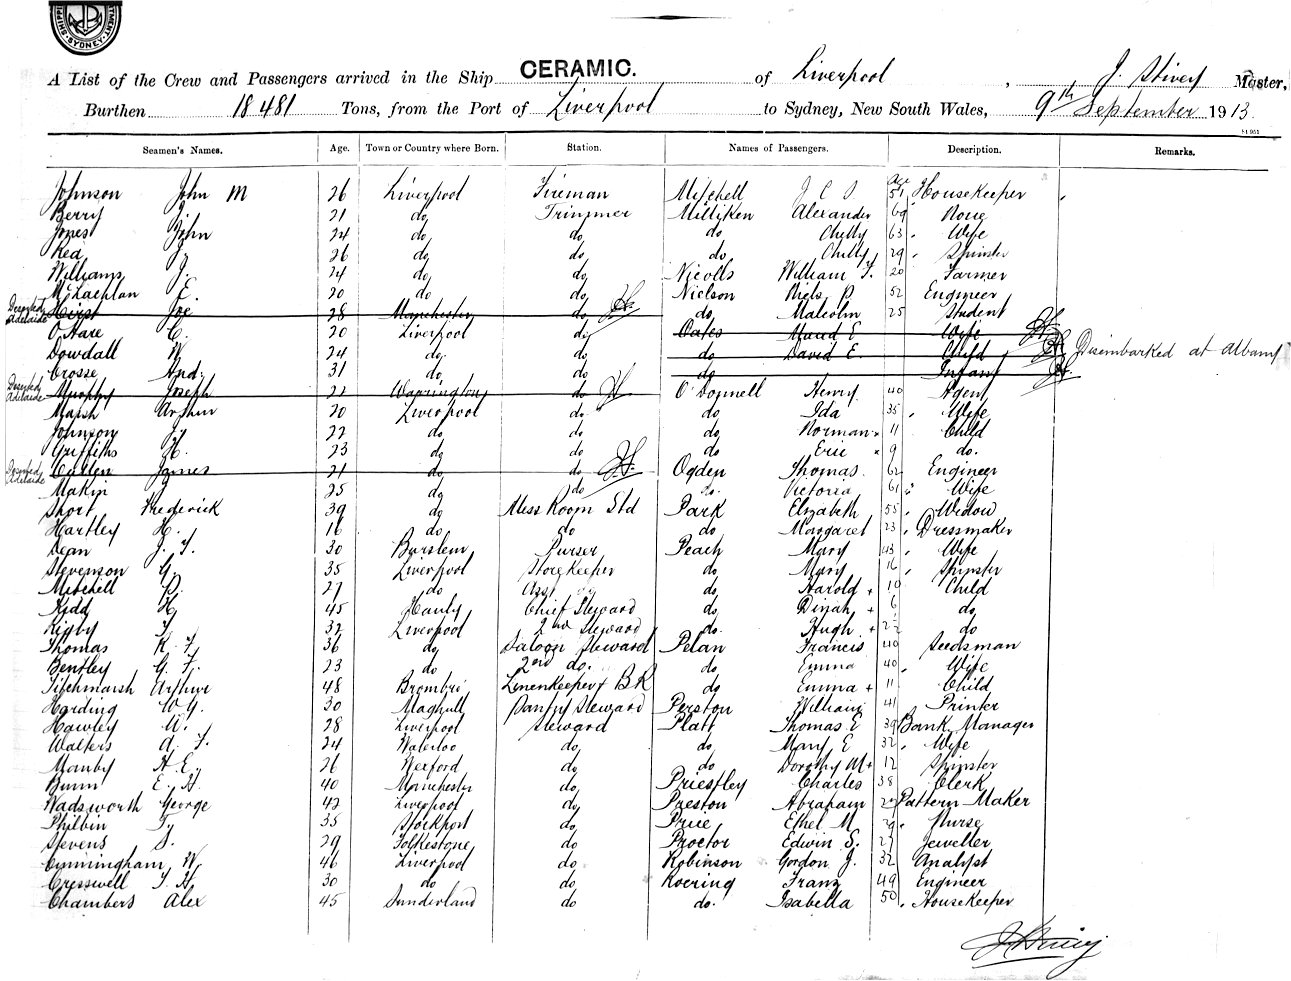 SHIPPI TMENT. SYDNEY
A List of the Crew and Passengers arrived in the Ship CERAMIC. of Liverpool, J. Master,
Burthen 18481 Tons, from the Port of Liverpool to Sydney, New South Wales, 9th September 1913
Seamen's Names. Age. Town or Country where Born. Station. Names of Passengers. Description. Remarks.
Age
Johnson John M 26 Liverpool Fireman Mitchell J C S 51 Housekeeper
Berry J. 21 do Trimmer Milliken Alexander 69 None
Jones John 24 do do do 63 Wife
Rea J. 26 do do do 29 Spinster
Williams J. 24 do do Nicolls William F. 20 Farmer
McLachlan E. 20 do do Nielson Niels P. 52 Engineer
Deserted Adelaide Hirst Joe 28 Manchester do do Malcolm 25 Student
O'Hare C. 20 Liverpool do Oates Maud E Wife
Dowdall W 24 do do do David E Child Disembarked at Albany
Crosse And. 31 do do do Infant
Deserted Adelaide Murphy Joseph 22 Warrington do O'Donnell Henry 40 Agent
Marsh Arthur 20 Liverpool do do Ida 35 Wife
Johnson J. 22 do do do Norman 11 Child
Griffiths H. 23 do do do Eric 9 do.
Deserted Adelaide Cullen James 21 do do Ogden Thomas. 62 Engineer
Makin 25 do do do. Victoria 61 Wife
Short Frederick 39 do Mess Room Std Park Elizabeth 55 Widow
Hartley H. 16 do do do Margaret 23 Dressmaker
Dean J. F. 30 Burslem Purser Peach Mary 43 Wife
Stevenson G. 35 Liverpool Storekeeper do Mary 16 Spinster
Mitchell P. 27 do Asst do do Harold 10 Child
Kidd H 45 Hanly Chief Steward do Dinah 6 do
Rigby F. 32 Liverpool 2nd Steward do. Hugh 2 do
Thomas R. F. 36 do Saloon Steward Pelan Francis 40 Seedsman
Bentley G. F. 23 do 2nd do. do Emma 40 Wife
Titchmarsh Arthur 48 Brombro Linenkeeper & BK do Emma 11 Child
Harding W G. 30 Maghull Pantry Steward Perston William 41 Printer
Hawley A. 28 Liverpool Steward Platt Thomas E 39 Bank Manager
Walters A. F. 24 Waterloo do do Mary E 32 Wife
Manby H. E. 26 Wexford do do Dorothy M 12 Spinster
Bunn E. H. 40 Manchester do Priestley Charles 38 Clerk
Wadsworth George 42 Liverpool do Preston Abraham 27 Pattern Maker
Philbin Ty 35 Stockport do Price Ethel M 29 Nurse
Stevens S. 29 Folkestone do Proctor Edwin S. 27 Jeweller
Cunningham W 46 Liverpool do Robinson Gordon J. 32 Analyst
Cresswell T. H. 30 do do Roering Franz 49 Engineer
Chambers Alex 45 Sunderland do do. Isabella 50 Housekeeper